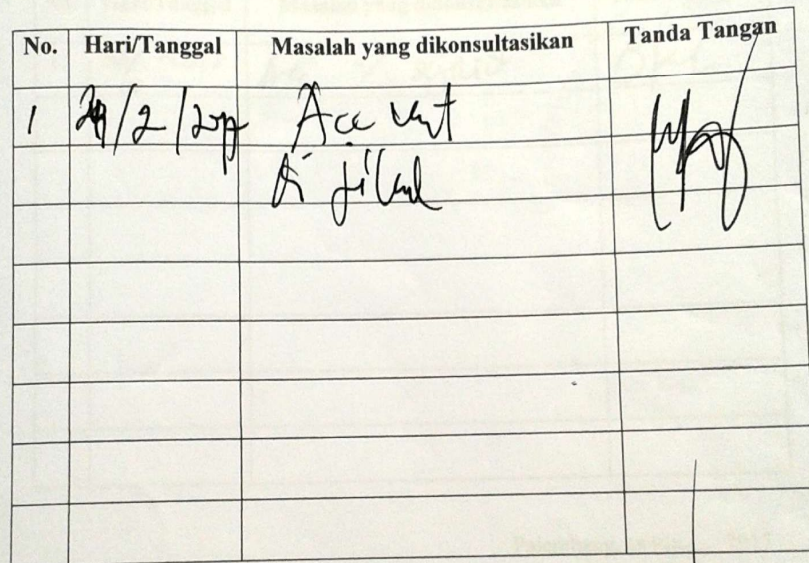 No. Hari/Tanggal Masalah yang dikonsultasikan Tanda Tangan
1 /2/ Acc unt
di jilid